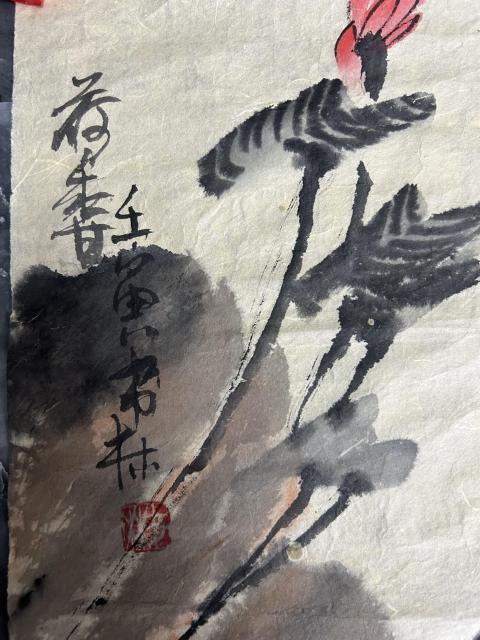 荷香
壬寅书林